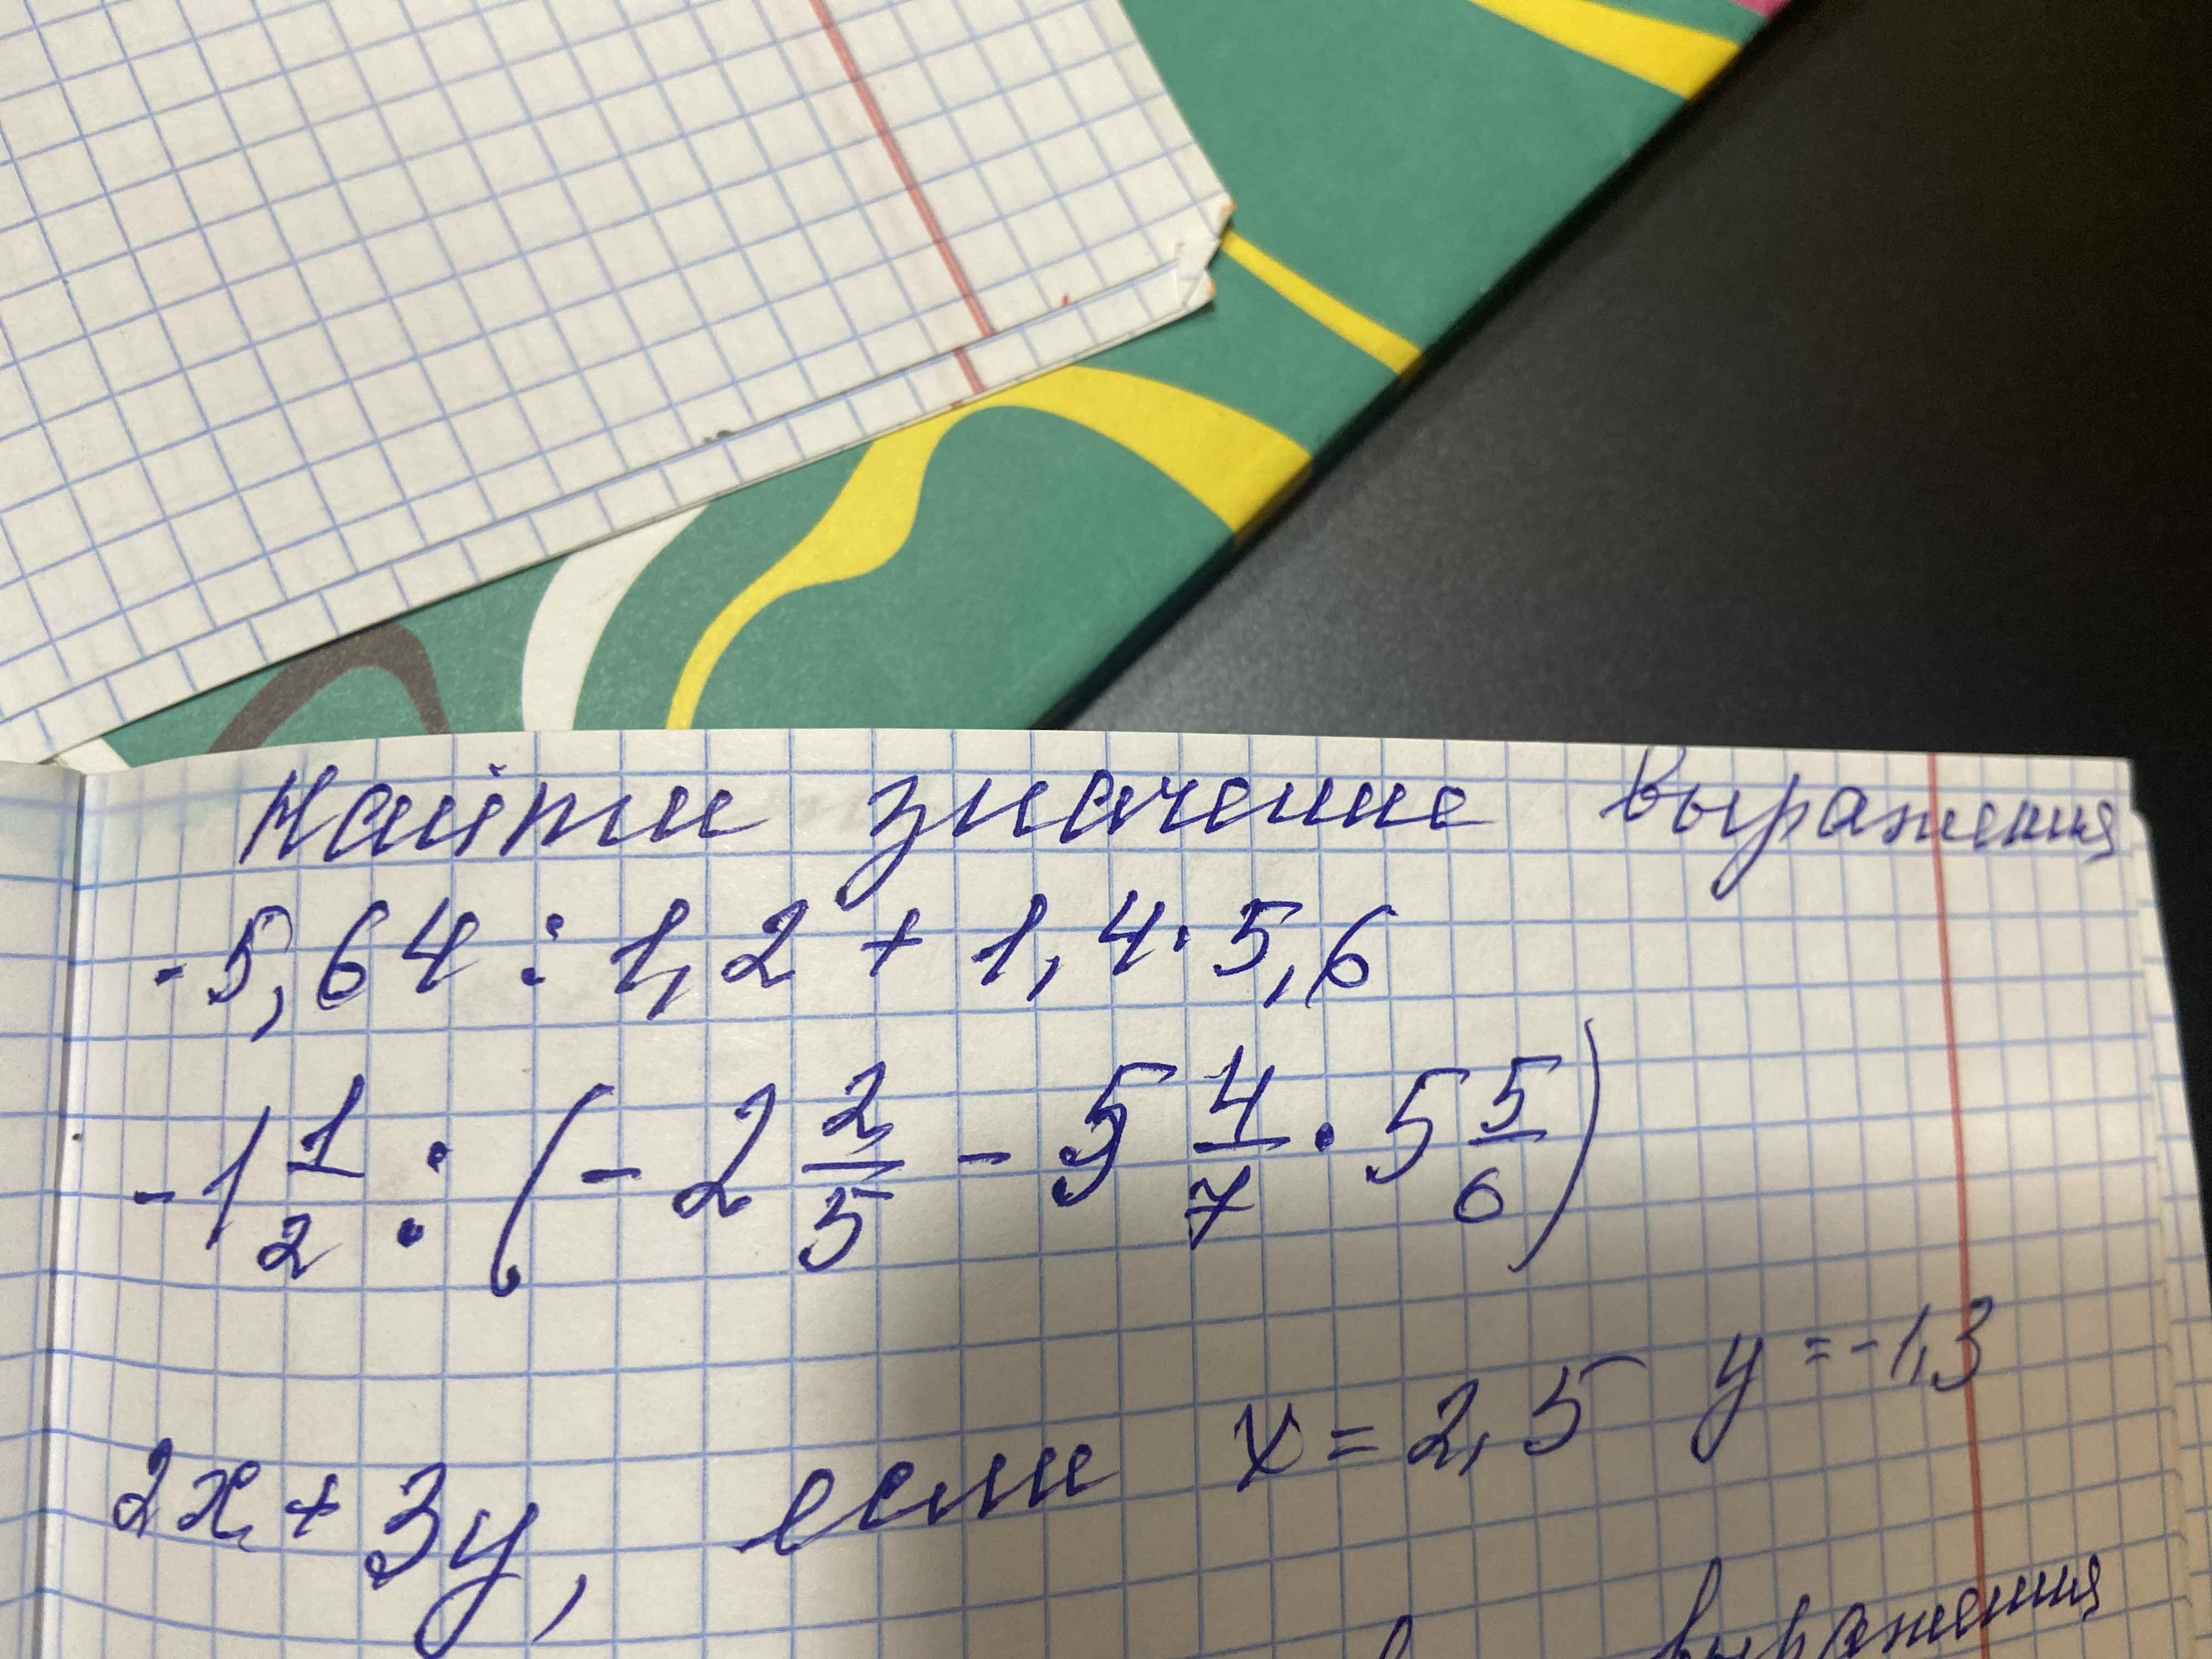 Найти значение выражения
-5,64 : 1,2 + 1,4 · 5,6
-1 1/2 : (-2 2/5 - 5 4/7 · 5 5/6)
2x + 3y, если x = 2,5 y = -1,3
выражения